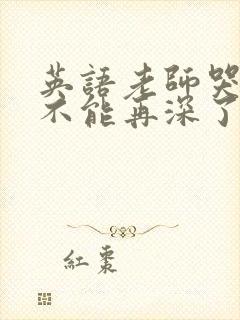 英語老師哭
不能再深了
紅棗